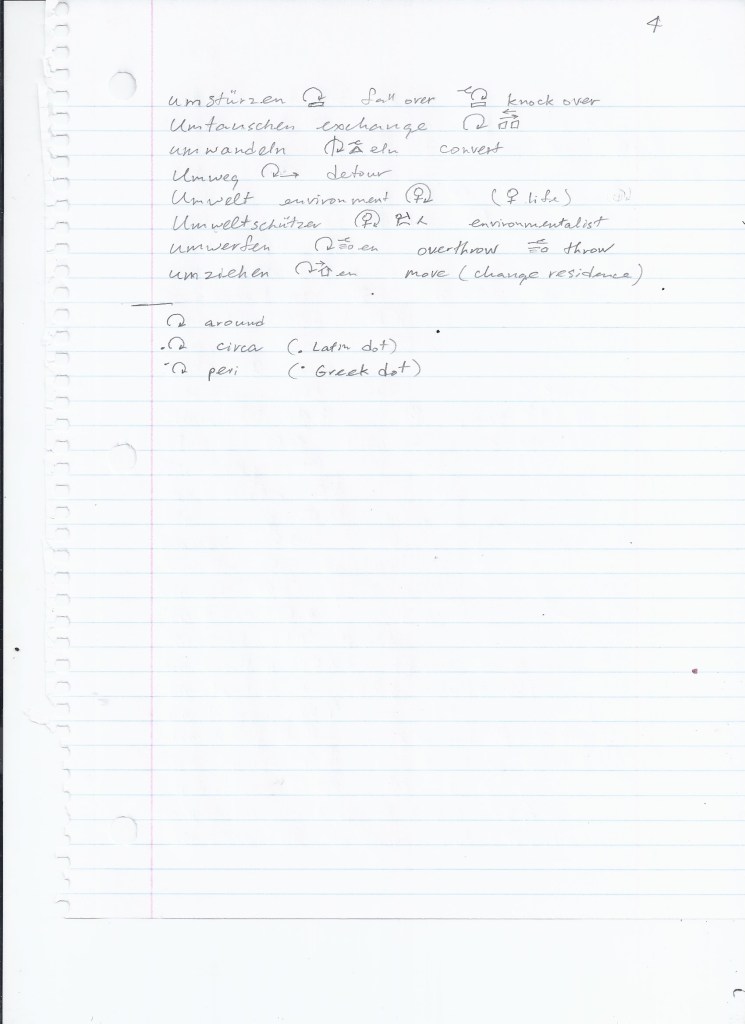 4
umstürzen fall over knock over
Umtauschen exchange
umwandeln eln convert
Umweg detour
Umwelt environment (♀ life)
Umweltschützer environmentalist
umwerfen en overthrow throw
umziehen en move (change residence)
around
circa (. Latin dot)
peri (· Greek dot)